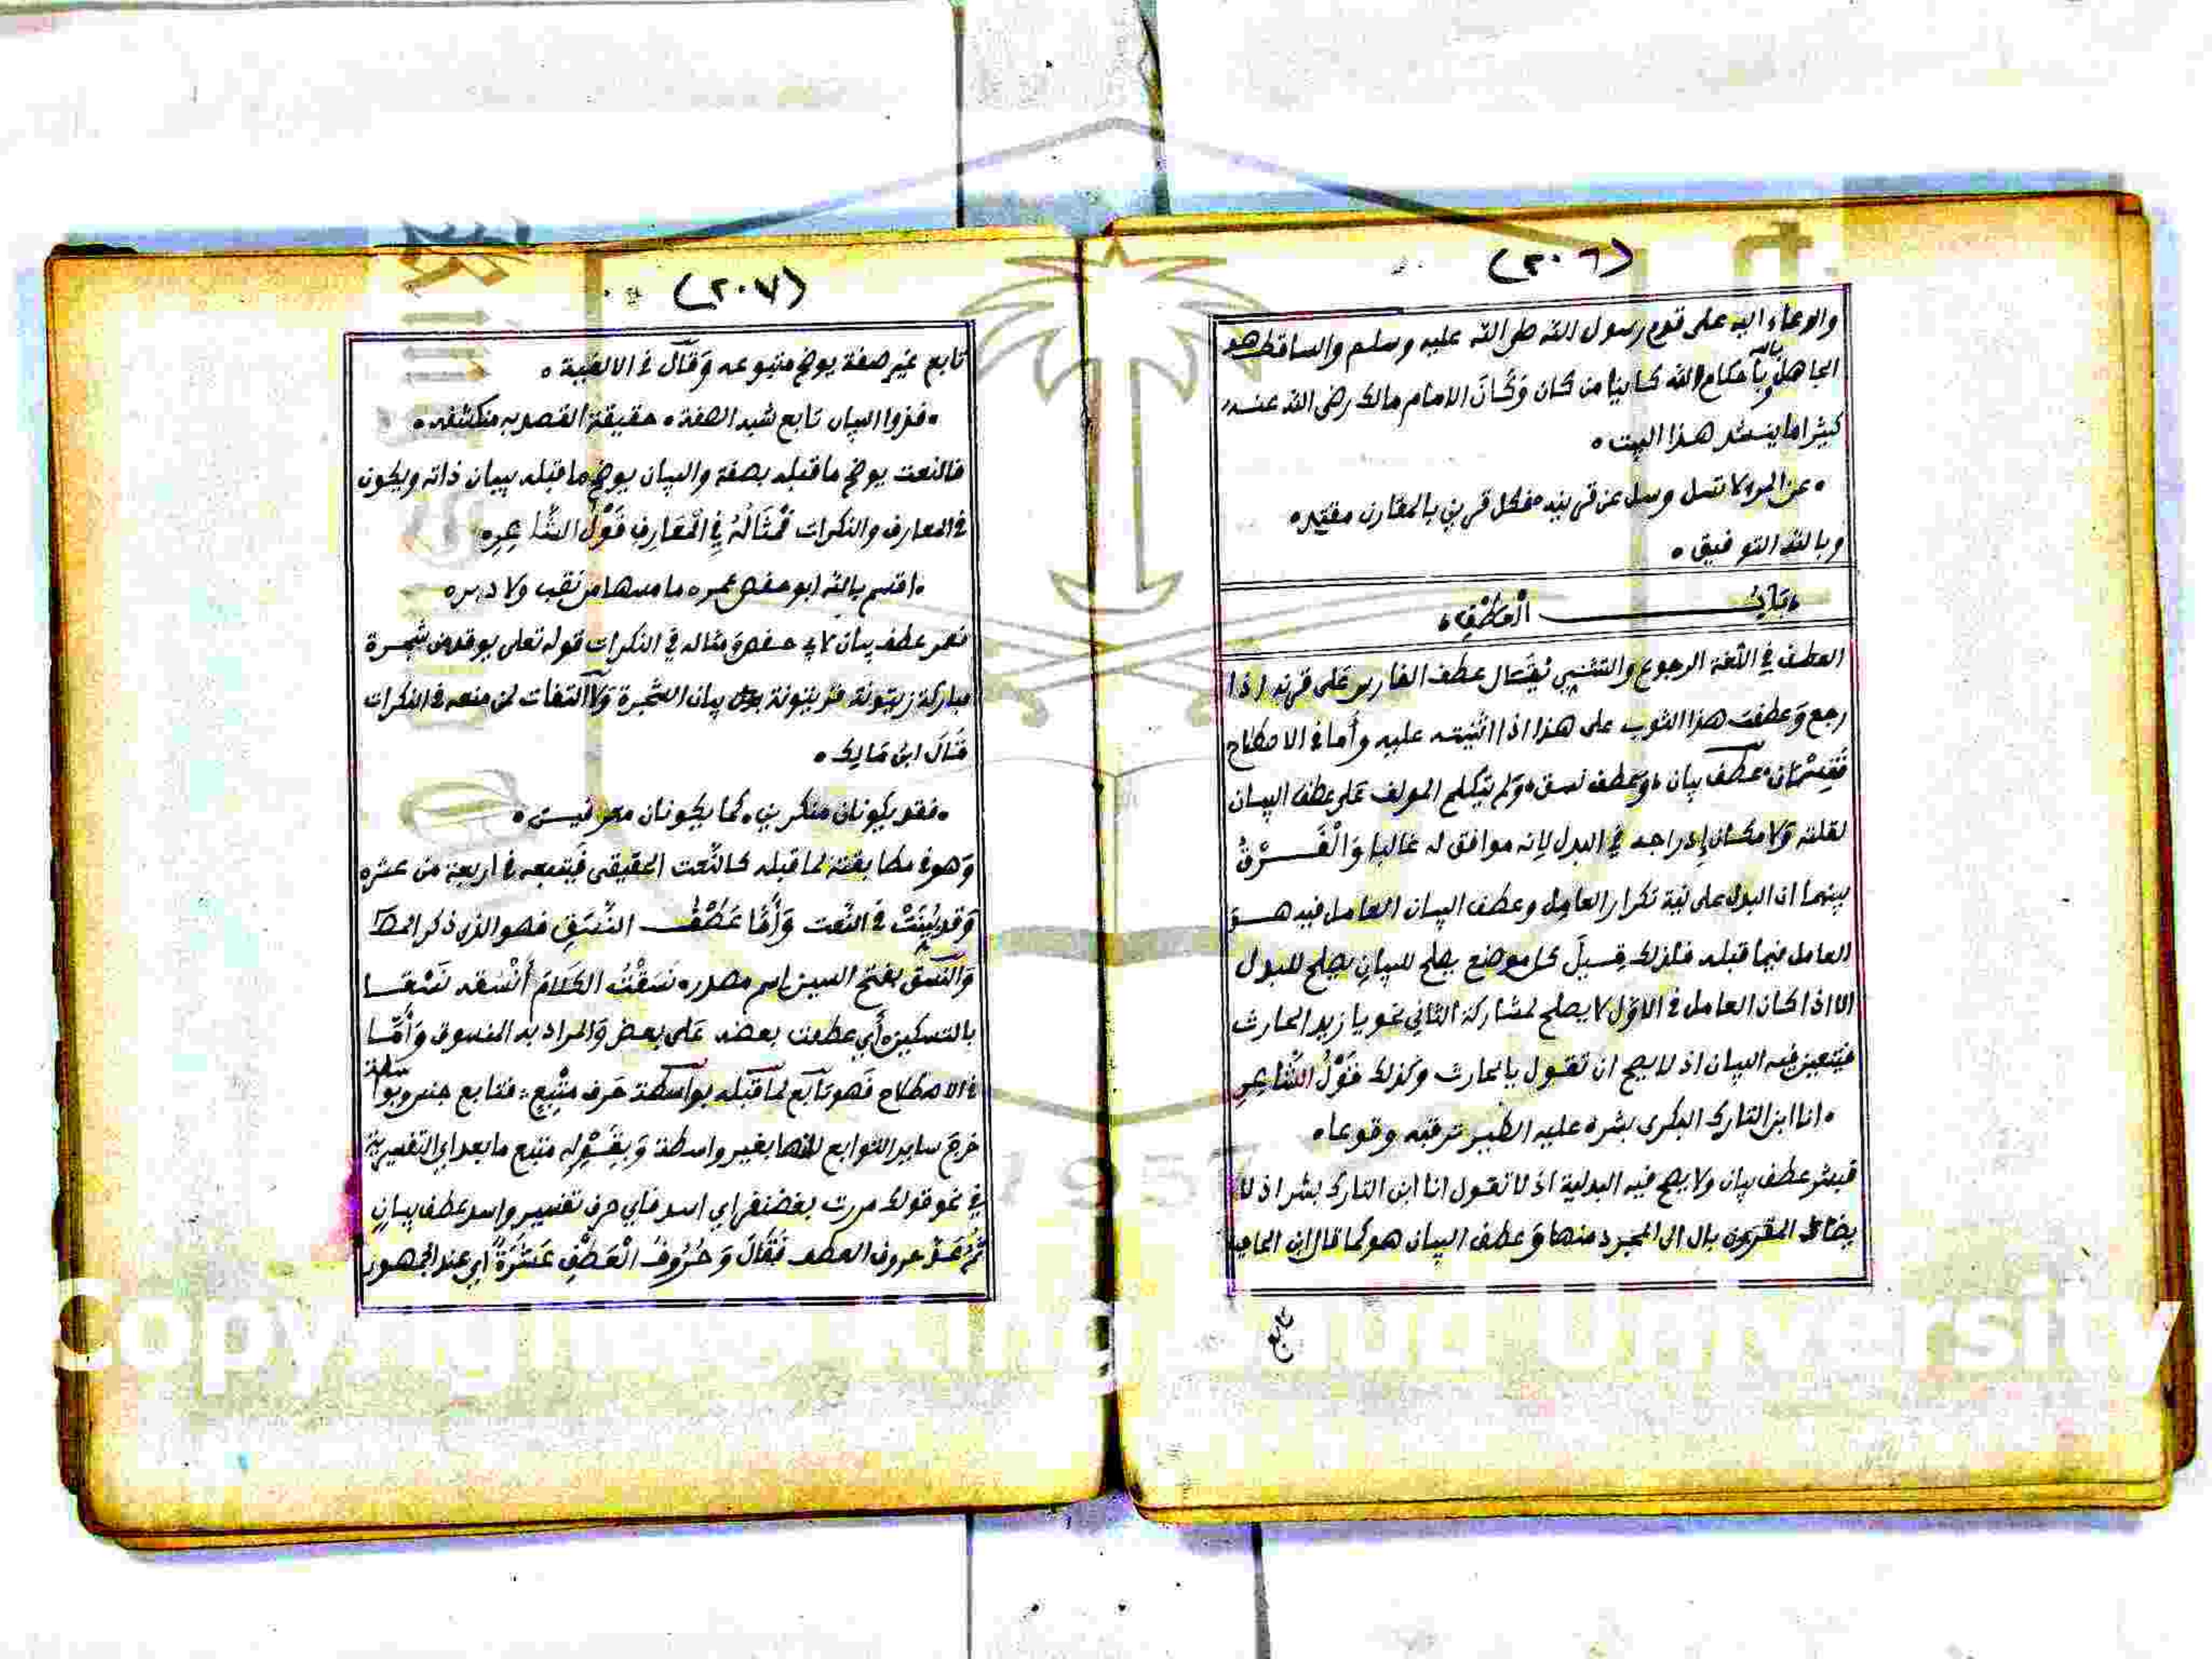 (٢٠٦)
والدعاء اليه على قوم رسول الله صلى الله عليه وسلم والساقط هو
الجاهل بالله وبأحكام الله كاينا من كان وَكَانَ الامام مالك رضى الله عنه
كثيرا ما ينشد هذا البيت ٠
٠ عن المرء لا تسل وسل عن قرينه ٠ فكل قرين بالمقارن مقتد ٠
وبالله التوفيق ٠
٠ بَابُ الْعَطْفِ ٠
العطف في اللغة الرجوع والتثني يُقَال عطف الفارس عَلى قرنه اذا
رجع وَعطفت هذا الثوب على هذا اذا اثنيته عليه وأما في الاصطلاح
فَقِسْمَان ٠ عطف بيان ٠ وَعطف نسق ٠ وَلم يتكلم المولف عَلى عطف البيان
لقلته وَلامكان إدراجه في البدل لانه موافق له غالبا وَالْفَرْقُ
بينهما ان البدل على نية تكرار العامل وعطف البيان العامل فيه هو
العامل فيما قبله فلذلك قِيلَ كل موضع يصلح للبيان يصلح للبدل
الا اذا كان العامل في الاول لا يصلح لمشاركة الثاني نحو يا زيد الحارث
فيتعين فيه البيان اذ لا يصح ان تقول يا الحارث وكذلك قَوْلُ الشَّاعِرِ
٠ انا ابن التارك البكرى بشر ٠ عليه الطير ترقبه وقوعا ٠
فبشر عطف بيان ولا يصح فيه البدلية اذ لا تقول انا ابن التارك بشر اذ لا
يضاف المقرون بال الى المجرد منها وَعطف البيان هو كما قال ابن الحاجب
تابع
(٢٠٧)
تابع غير صفة يوضح متبوعه وَقَالَ في الالفية ٠
٠ فذوا البيان تابع شبه الصفة ٠ حقيقة القصد به منكشفه ٠
فالنعت يوضح ما قبله بصفة والبيان يوضح ما قبله ببيان ذاته ويكون
في المعارف والنكرات فَمِثَالُهُ فِي الْمَعَارِفِ قَوْلُ الشَّاعِرِ ٠
٠ اقسم بالله ابو حفص عمر ٠ ما مسها من نقب ولا دبر ٠
فعمر عطف بيان لابي حفص وَمثاله في النكرات قوله تعلى يوقد من شجرة
مباركة زيتونة فزيتونة بيان الشجرة وَلا التفات لمن منعه في النكرات
قَالَ ابن مَالِك ٠
٠ فقد يكونان منكرين ٠ كما يكونان معرفين ٠
وَهو في مطابقته لما قبله كالنعت الحقيقى فَيَتبعه في اربعة من عشره
وَقد بُيِّنَتْ في النعت وَأَمَّا عَطْفُ النَّسَقِ فهو الذى ذكر المص
وَالنَّسَق بفتح السين اسم مصدره نَسَقْتُ الكَلَامَ أَنْسُقه نَسْقا
بالتسكين أي عطفت بعضه عَلى بعض وَالمراد به المنسوق وَأَمَّا
في الاصطلاح فَهو تابع لما قبله بواسطة حَرف مُتْبِعٍ فتابع جنس وبواسطة
خرج ساير التوابع لانها بغير واسطة وَبِقَوْلِهِ متبع ما بعد اي التفسيرية
في نحو قولك مررت بغضنفر اي اسد فاي حرف تفسير واسد عطف بيان
ثُمَّ عَدَّ حروف العطف فَقَالَ وَحُرُوفُ الْعَطْفِ عَشَرَةٌ اي عند الجمهور